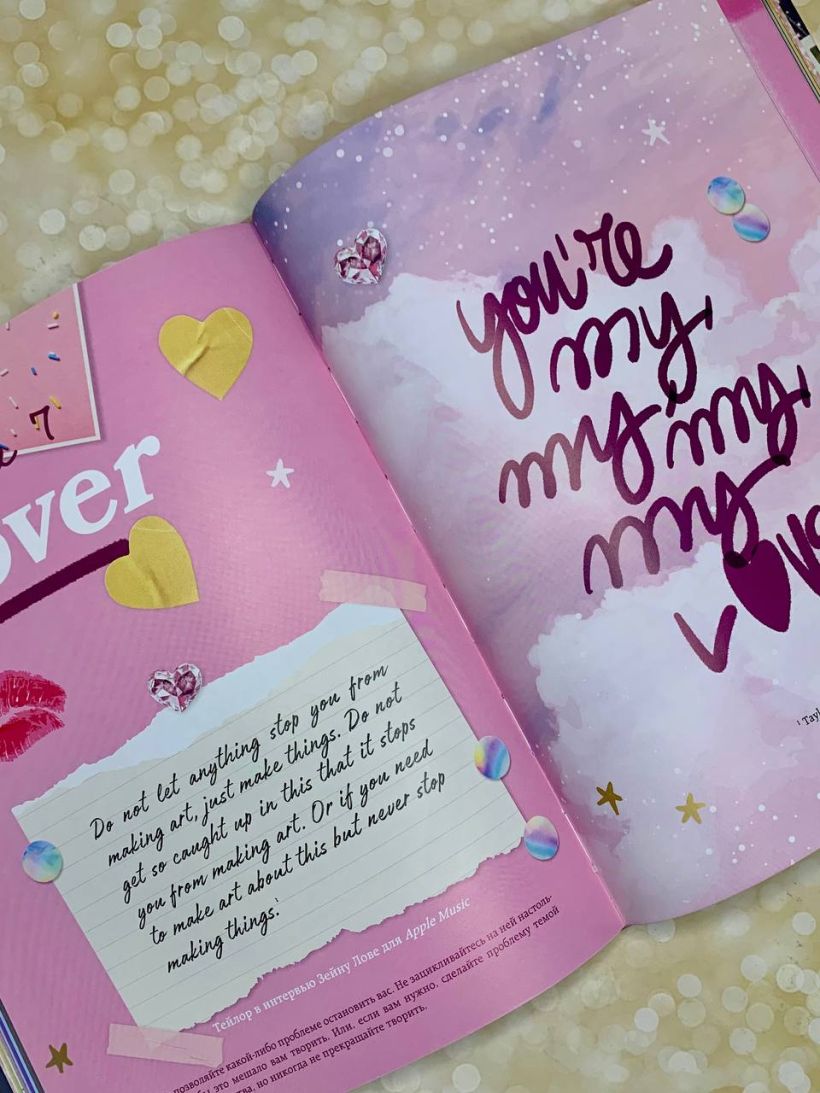 7
over
Do not let anything stop you from
making art, just make things. Do not
get so caught up in this that it stops
you from making art. Or if you need
to make art about this but never stop
making things.¹
Тейлор в интервью Зейну Лове для Apple Music
позволяйте какой-либо проблеме остановить вас. Не зацикливайтесь на ней настоль-
бы это мешало вам творить. Или, если вам нужно, сделайте проблему темой
ства, но никогда не прекращайте творить.
you're
my
my my
my